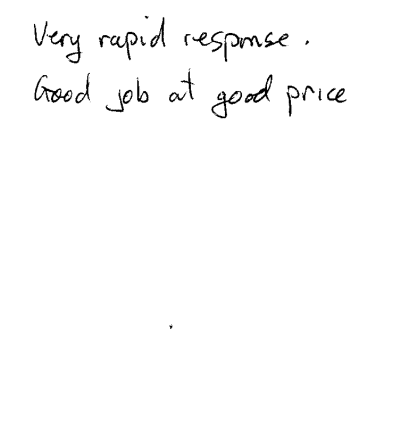 Very rapid response.
Good job at good price